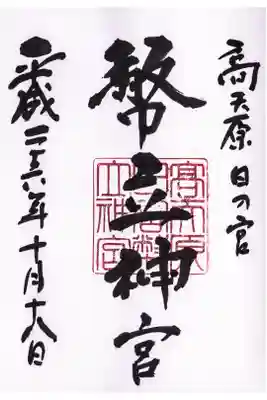 高天原 日の宮
幣立神宮
高天原
日宮幣
立神宮
平成二十六年十月十八日